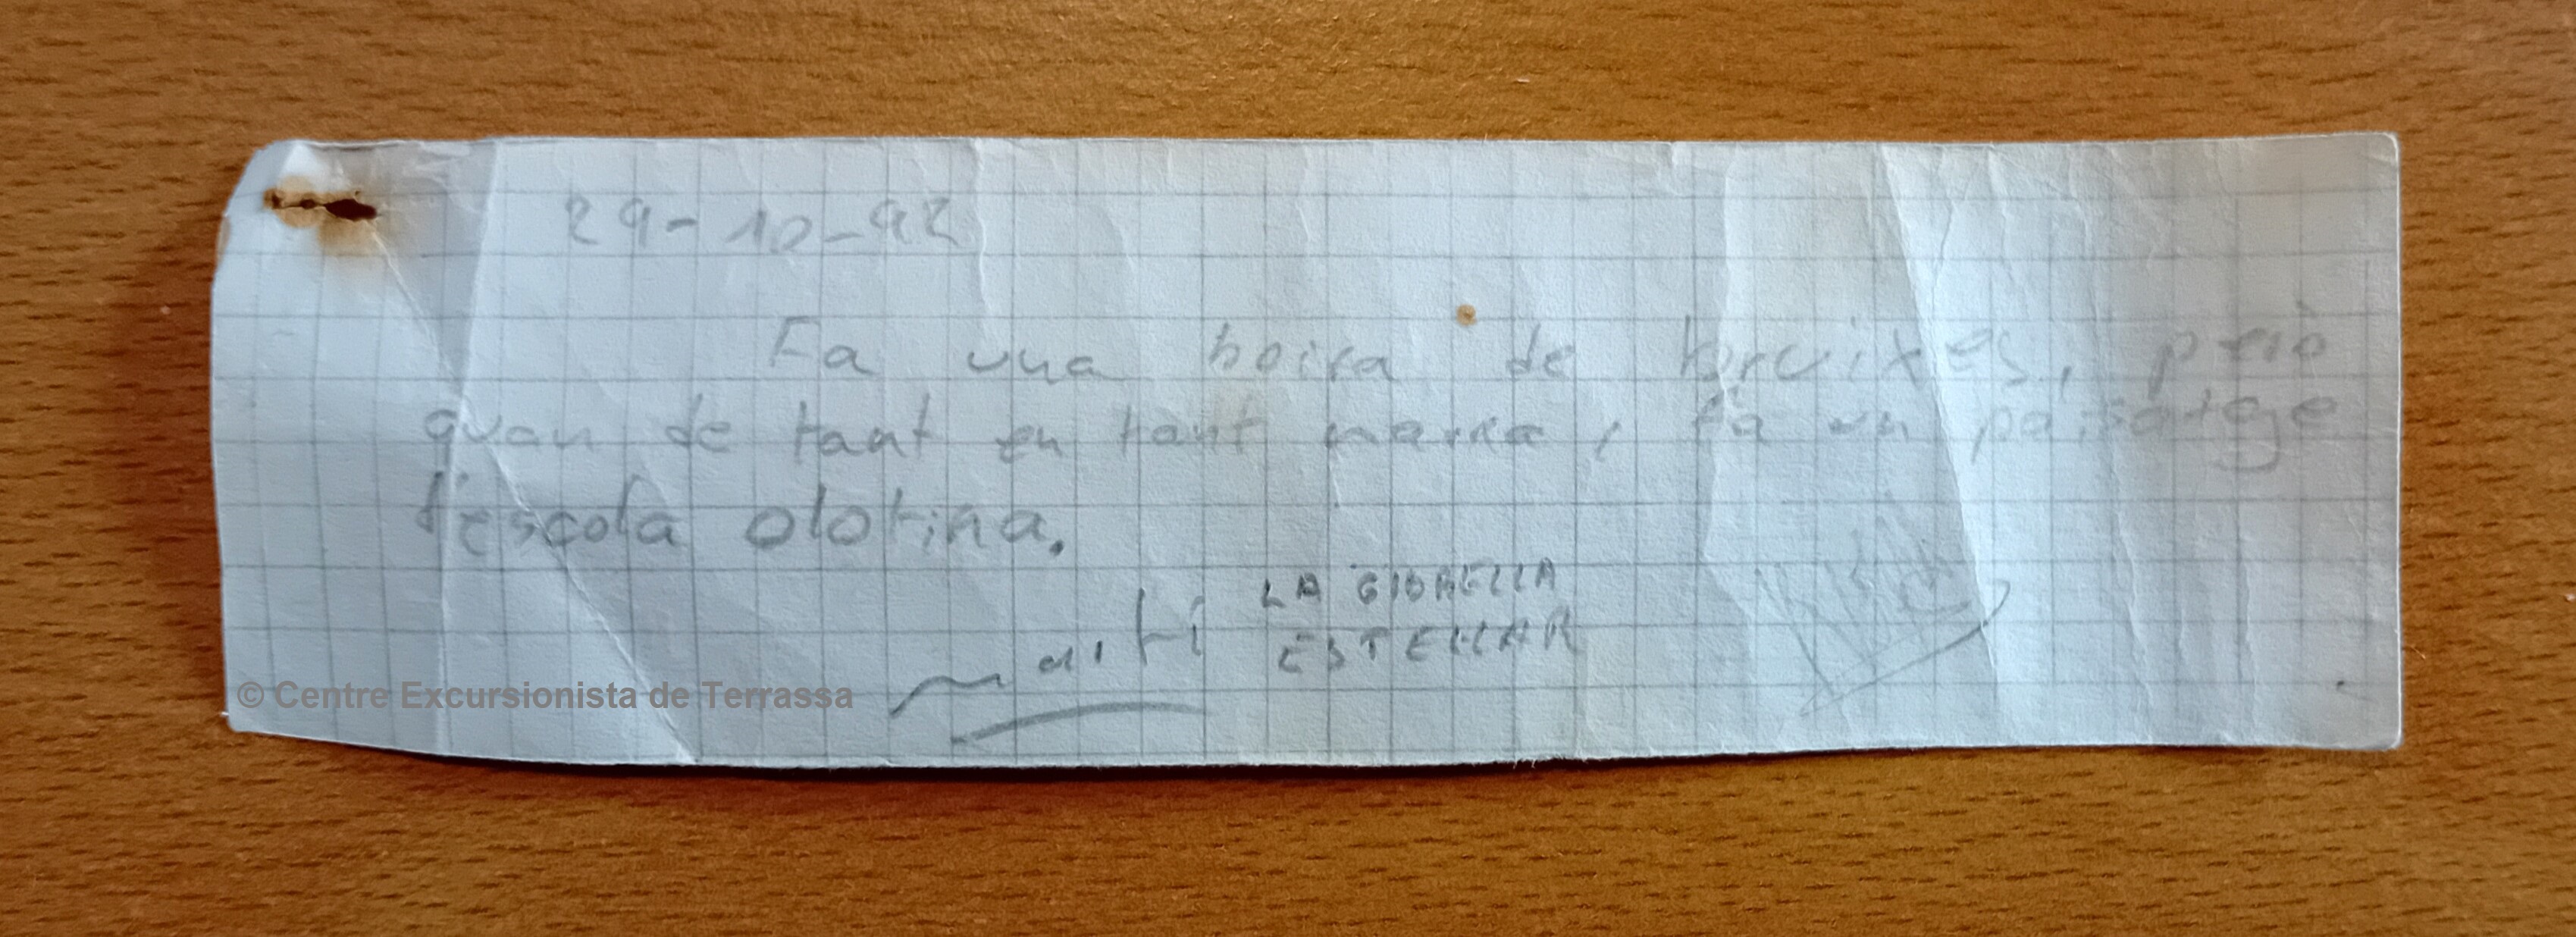 29-10-92
Fa una boira de bruixes, però
quan de tant en tant marxa, fa un paisatge
d'escola olotina.
Martí
LA GIBRELLA
ESTELLAR
© Centre Excursionista de Terrassa